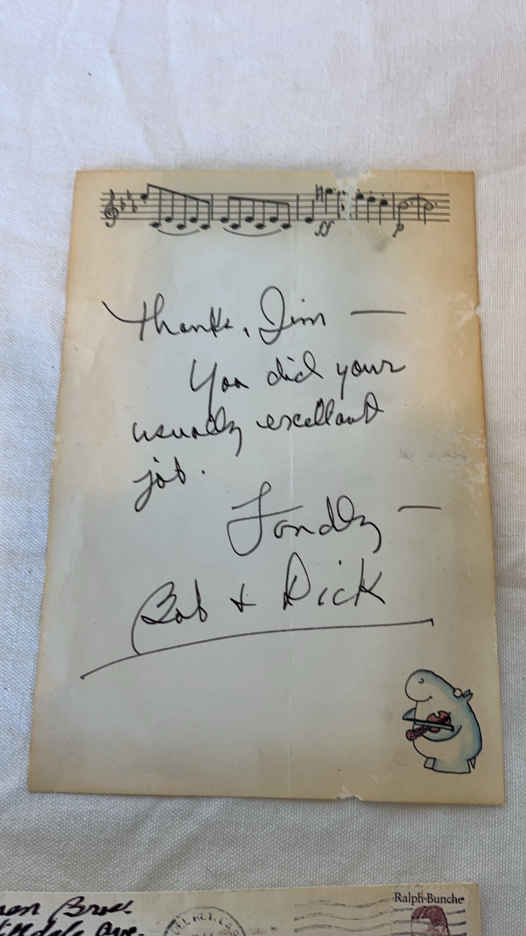 ff
p
Thanks, Jim —
You did your
usually excellent
job.
Fondly —
Bob & Dick
Ralph Bunche
Bros.
Ave.